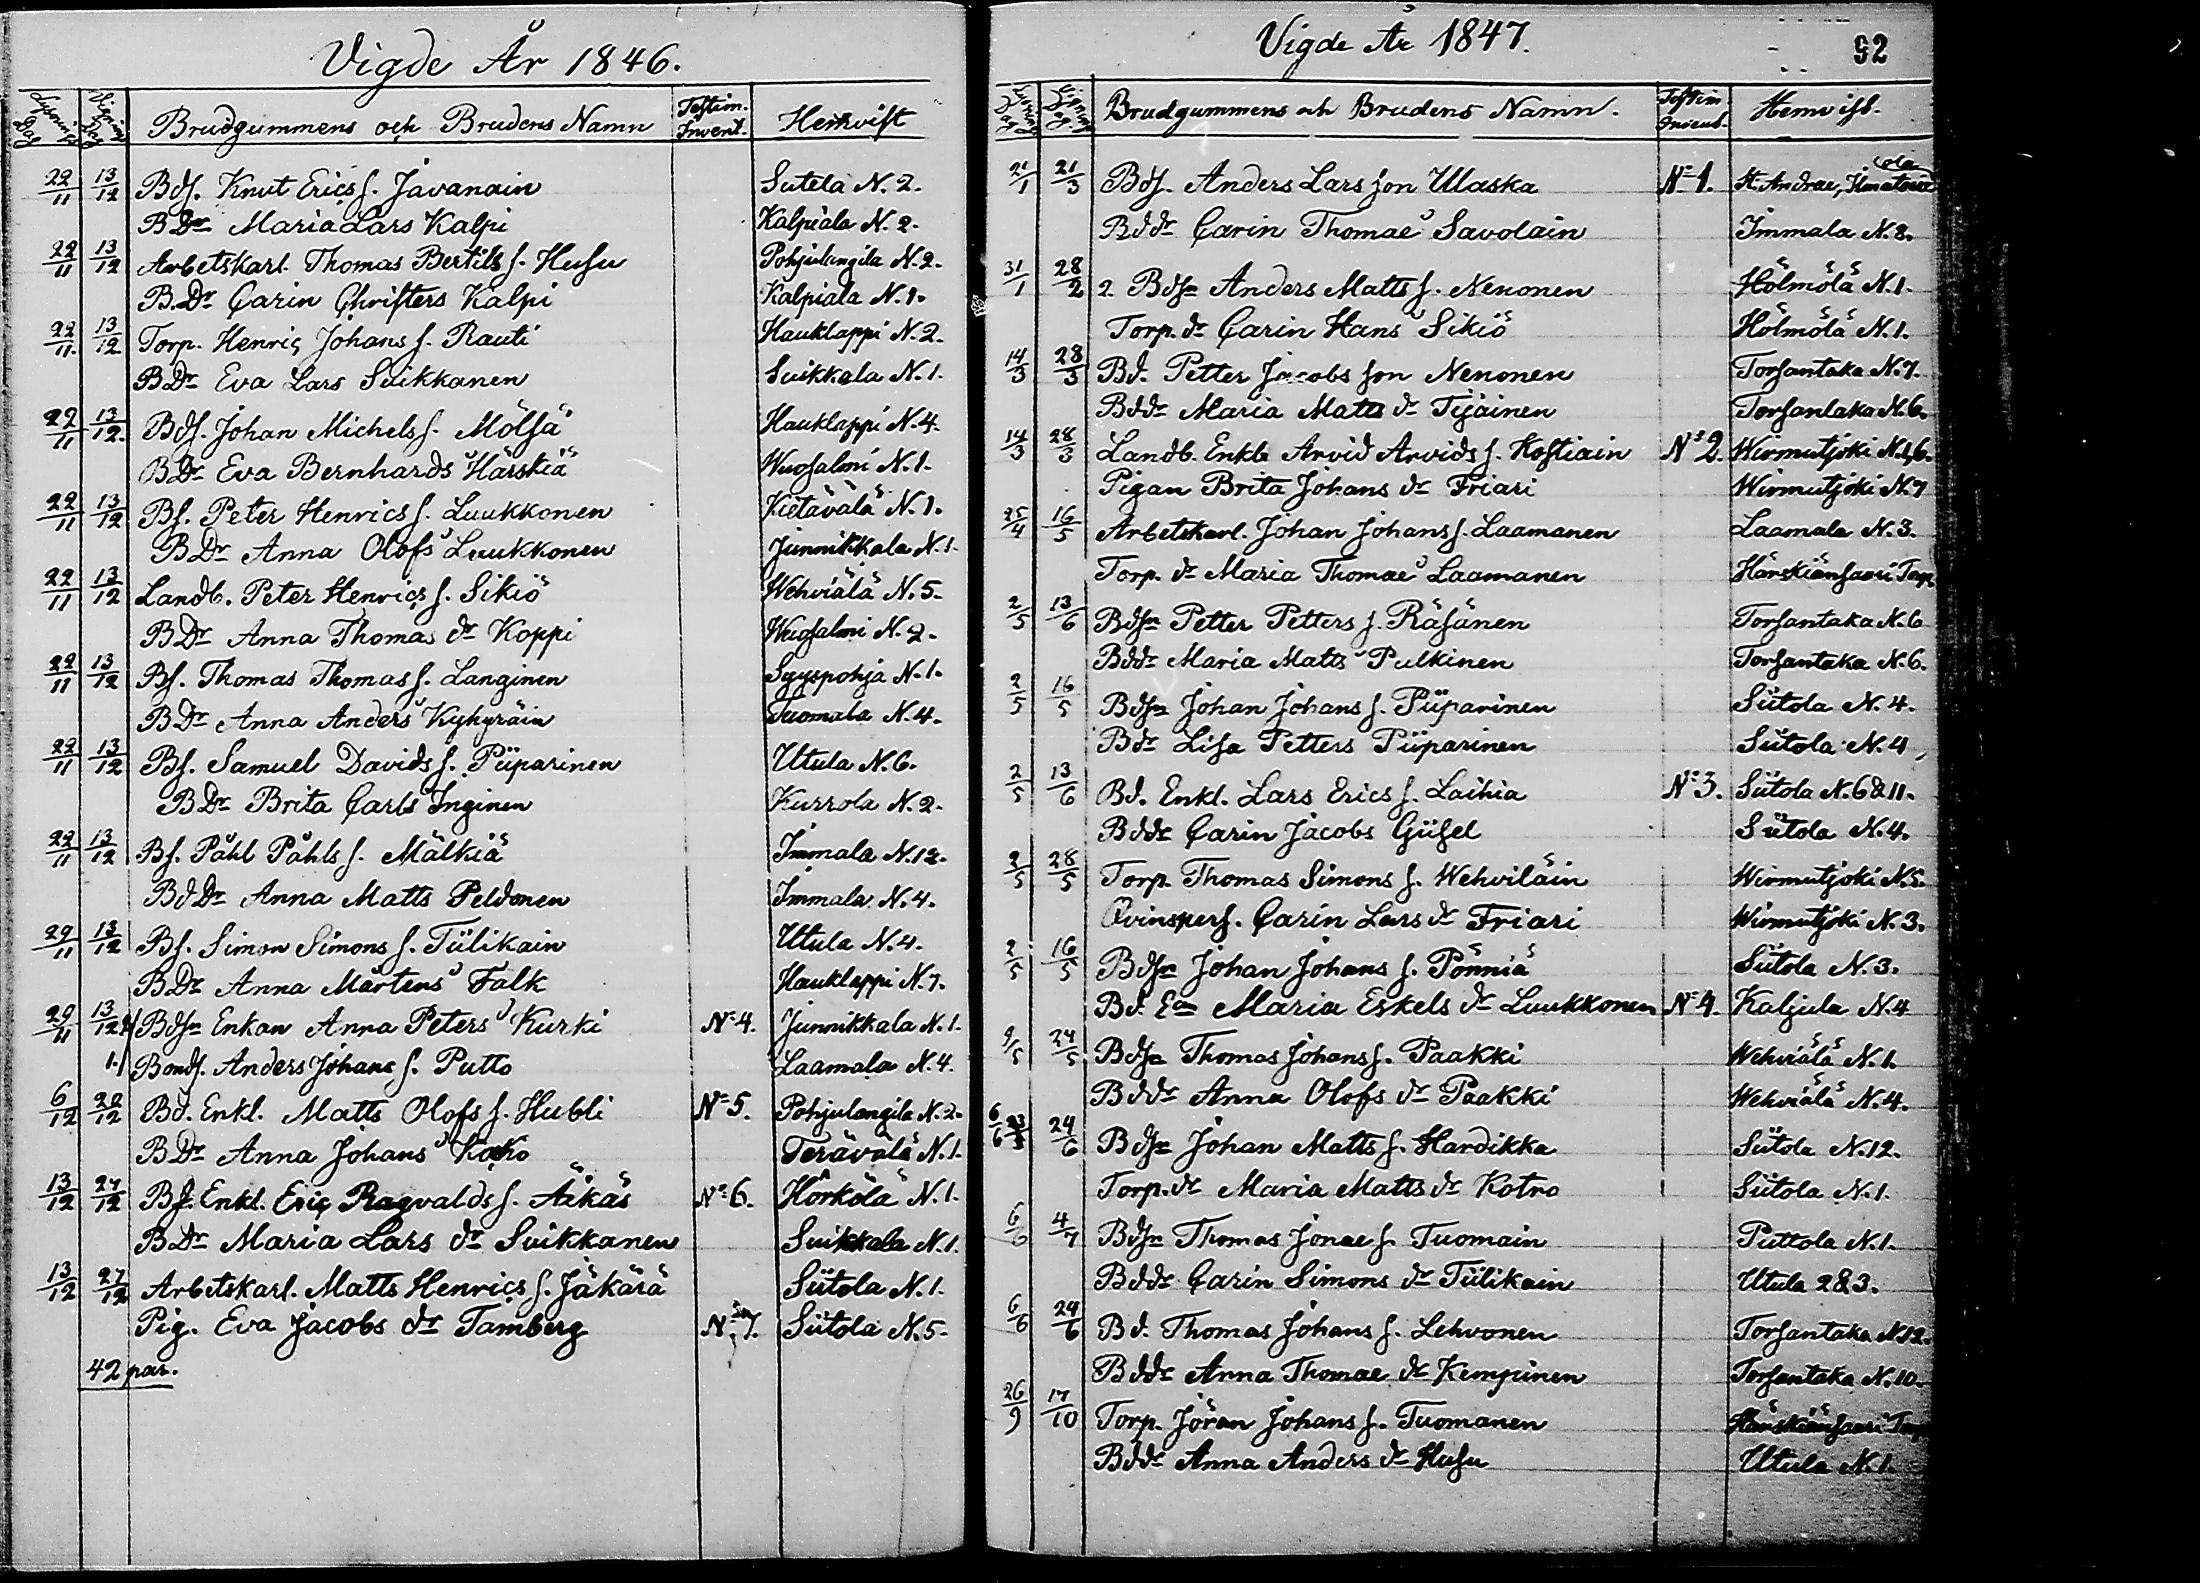 Vigde År 1846.
Lysnings Dag Vigning Dag Brudgummens och Brudens Namn Testim. Invent. Hemvist
22/11 13/12 Bdſ. Knut Ericsſ. Javanain Sutela N. 2.
BDr Maria Lars Kalpi Kalpiala N. 2.
22/11 13/12 Arbetskarl. Thomas Bertilsſ. Huſu Pohjulangila N. 2.
B.Dr Carin Chriſters Kalpi Kalpiala N. 1.
22/11. 13/12. Torp. Henric Johansſ. Rauti Hauklappi N. 2.
BDr Eva Lars Suikkanen Suikkala N. 1.
22/11 13/12. Bdſ. Johan Michelsſ. Mölſä Hauklappi N. 4.
BDr Eva Bernhards Härskiä Wuoſalmi N. 1.
22/11 13/12 Bſ. Peter Henricsſ. Luukkonen Kietävälä N. 1.
BDr Anna Olofs Luukkonen Junnikkala N. 1.
22/11 13/12 Landb. Peter Henricsſ. Sikiö Wehviälä N. 5.
BDr Anna Thomas dr Koppi Wuoſalmi N. 2.
22/11 13/12 Bſ. Thomas Thomasſ. Langinen Syyspohja N. 1.
BDr Anna Anders Kyhyräin Tuomala N. 4.
22/11 13/12 Bſ. Samuel Davidsſ. Piiparinen Utula N. 6.
BDr Brita Carls Inginen Kurrola N. 2.
22/11 13/12 Bſ. Påhl Påhlsſ. Mälkiä Immala N. 12.
BdDr Anna Matts Peldonen Immala N. 4.
29/11 13/12 Bſ. Simon Simonsſ. Tiilikain Utula N. 4.
BDr Anna Mårtens Falk Hauklappi N. 7.
29/11 13/12 Bdſn Enkan Anna Peters Kurki No 4. Junnikkala N. 1.
1. Bondſ. Anders Johansſ. Putto Laamala N. 4.
6/12 28/12 Bd. Enkl. Matts Olofsſ. Hubli No 5. Pohjulangila N. 2.
BDr Anna Johans Koko Terävälä N. 1.
13/12 27/12 Bſ. Enkl. Eric Ragvaldsſ. Äikäs No 6. Hörkölä N. 1.
BDr Maria Lars dr Suikkanen Suikkala N. 1.
13/12 27/12 Arbetskarl. Matts Henricsſ. Jäkärä Siitola N. 1.
Pig. Eva Jacobs dr Tamberg No 7. Siitola N. 5.
42 par.
Vigde År 1847.
92
Lysnings Dag Vigning Dag Brudgummens och Brudens Namn. Testim Invent. Hemviſt.
21/1 21/3 Bdſ. Anders Larsſon Ulaska No 1. St. Andrae,
Bddr Carin Thomae Savolain Immala N. 8.
31/1 28/2 2. Bdſn Anders Mattsſ. Nenonen Hölmölä N. 1.
Torp. dr Carin Hans Sikiö Hölmölä N. 1.
14/3 28/3 Bd. Petter Jacobsſon Nenonen Torſantaka N. 7.
Bddr Maria Matts dr Tijäinen Torſantaka N. 6.
14/3 28/3 Landb. Enkl. Arvid Arvidsſ. Hoſtiain No 2. Wirmutjoki
Pigan Brita Johans dr Friari Wirmutjoki N. 7
25/4 16/5 Arbetskarl. Johan Johansſ. Laamanen Laamala N. 3.
Torp. dr Maria Thomae Laamanen Härskiänſaari Torp.
2/5 13/6 Bdſn Petter Pettersſ. Räſänen Torſantaka N. 6
Bddr Maria Matts Pulkinen Torſantaka N. 6.
2/5 16/5 Bdſn Johan Johansſ. Piiparinen Siitola N. 4.
Bdr Liſa Petters Piiparinen Siitola N. 4
2/5 13/6 Bd. Enkl. Lars Ericsſ. Laihia No 3. Siitola N. 6 & 11.
Bddr Carin Jacobs Giiſel Siitola N. 4.
2/5 28/5 Torp. Thomas Simonsſ. Wehviläin Wirmutjoki N. 5.
Qvinsperſ. Carin Lars dr Friari Wirmutjoki N. 3.
2/5 16/5 Bdſn Johan Johansſ. Pönniä Siitola N. 3.
Bd. En Maria Eskels dr Luukkonen No 4. Kaljula N. 4
9/5 24/5 Bdſn Thomas Johansſ. Paakki Wehviälä N. 1.
Bddr Anna Olofs dr Paakki Wehviälä N. 4.
6/6 24/6 Bdſn Johan Mattsſ. Hardikka Siitola N. 12.
Torp. dr Maria Matts dr Kotro Siitola N. 1.
6/6 4/7 Bdſn Thomas Jonaeſ. Tuomain Puttola N. 1.
Bddr Carin Simons dr Tiilikain Utula 2 & 3.
6/6 24/6 Bd. Thomas Johansſ. Lehvonen Torſantaka N. 12.
Bddr Anna Thomae dr Kempinen Torſantaka N. 10.
26/9 17/10 Torp. Jöran Johansſ. Tuomanen Härskiänſaari Torp
Bddr Anna Anders dr Huſu Utula N. 1.